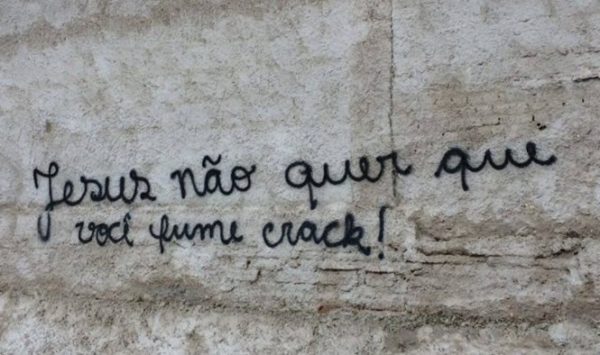 Jesus não quer que
você fume crack!